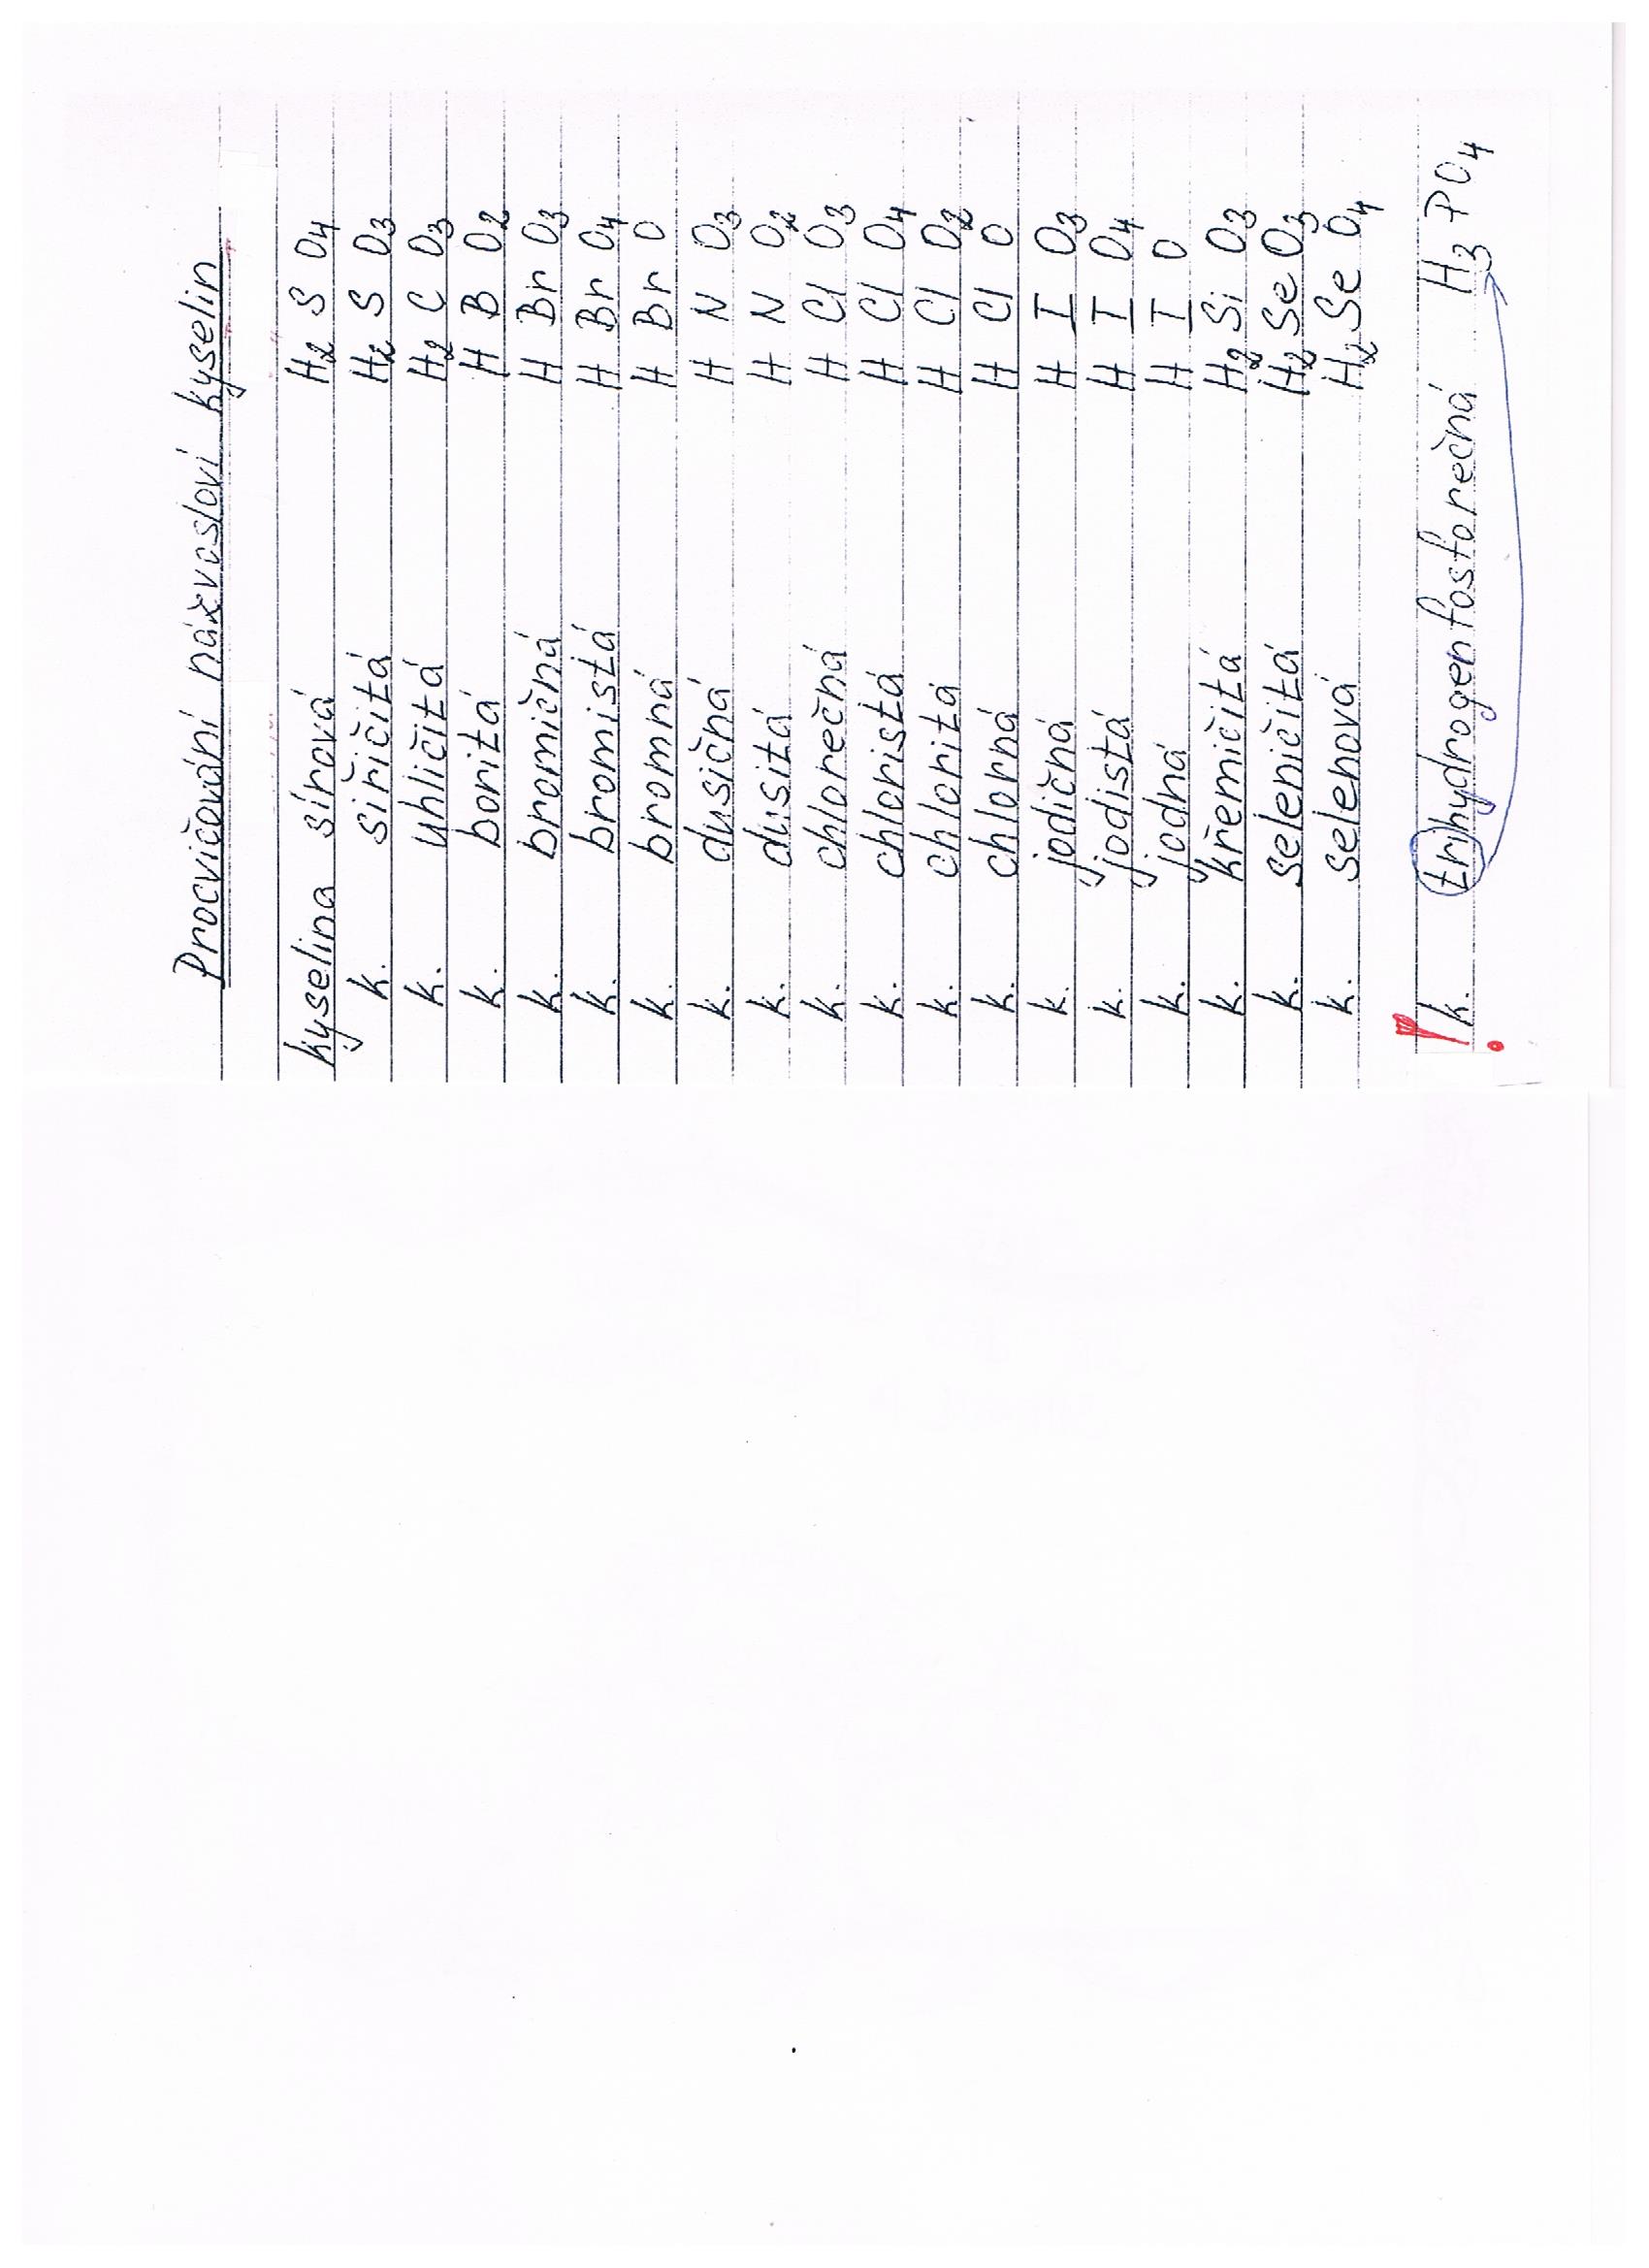 Procvičování názvosloví kyselin
kyselina sírová H₂ S O₄
k. siřičitá H₂ S O₃
k. uhličitá H₂ C O₃
k. boritá H B O₂
k. bromičná H Br O₃
k. bromistá H Br O₄
k. bromná H Br O
k. dusičná H N O₃
k. dusitá H N O₂
k. chlorečná H Cl O₃
k. chloristá H Cl O₄
k. chloritá H Cl O₂
k. chlorná H Cl O
k. jodičná H I O₃
k. jodistá H I O₄
k. jodná H I O
k. křemičitá H₂ Si O₃
k. seleničitá H₂ Se O₃
k. selenová H₂ Se O₄
! k. trihydrogenfosforečná H₃PO₄